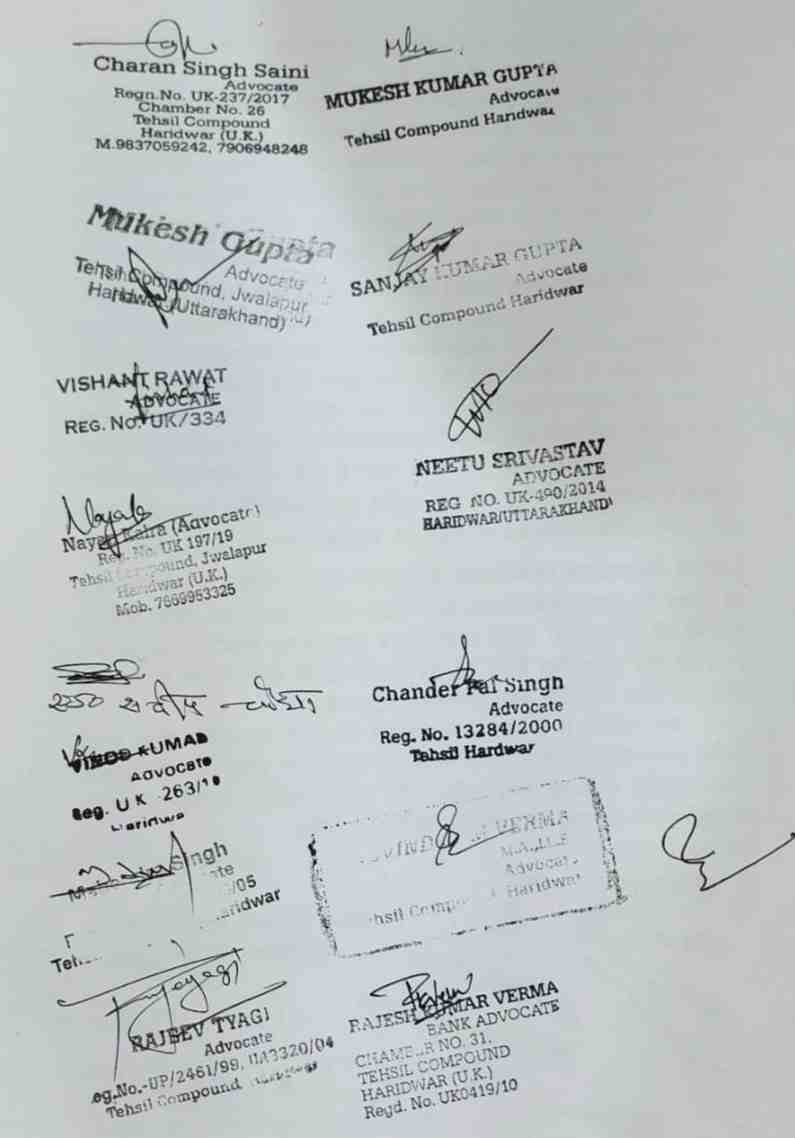 Charan Singh Saini
Advocate
Regn.No. UK-237/2017
Chamber No. 26
Tehsil Compound
Haridwar (U.K.)
M.9837059242, 7906948248
MUKESH KUMAR GUPTA
Advocate
Tehsil Compound Haridwar
Mukesh Gupta
Advocate
Tehsil Compound, Jwalapur
Haridwar (Uttarakhand)
SANJAY KUMAR GUPTA
Advocate
Tehsil Compound Haridwar
VISHANT RAWAT
ADVOCATE
REG. NO. UK/334
NEETU SRIVASTAV
ADVOCATE
REG NO. UK-490/2014
HARIDWAR/UTTARAKHAND
Kalra (Advocate)
Reg. No. UK 197/19
Tehsil Compound, Jwalapur
Haridwar (U.K.)
Mob. 7669953325
Chander Pal Singh
Advocate
Reg. No. 13284/2000
Tahsil Hardwar
VINOD KUMAR
Advocate
Reg. UK 263/
Haridwa
Singh
/05
aridwar
Teh
VERMA
Advocate
Haridwar
RAJEEV TYAGI
Advocate
eg.No.-UP/2461/99, UA3320/04
Tehsil Compound
RAJESH KUMAR VERMA
BANK ADVOCATE
CHAMBER NO. 31,
TEHSIL COMPOUND
HARIDWAR (U.K.)
Regd. No. UK0419/10